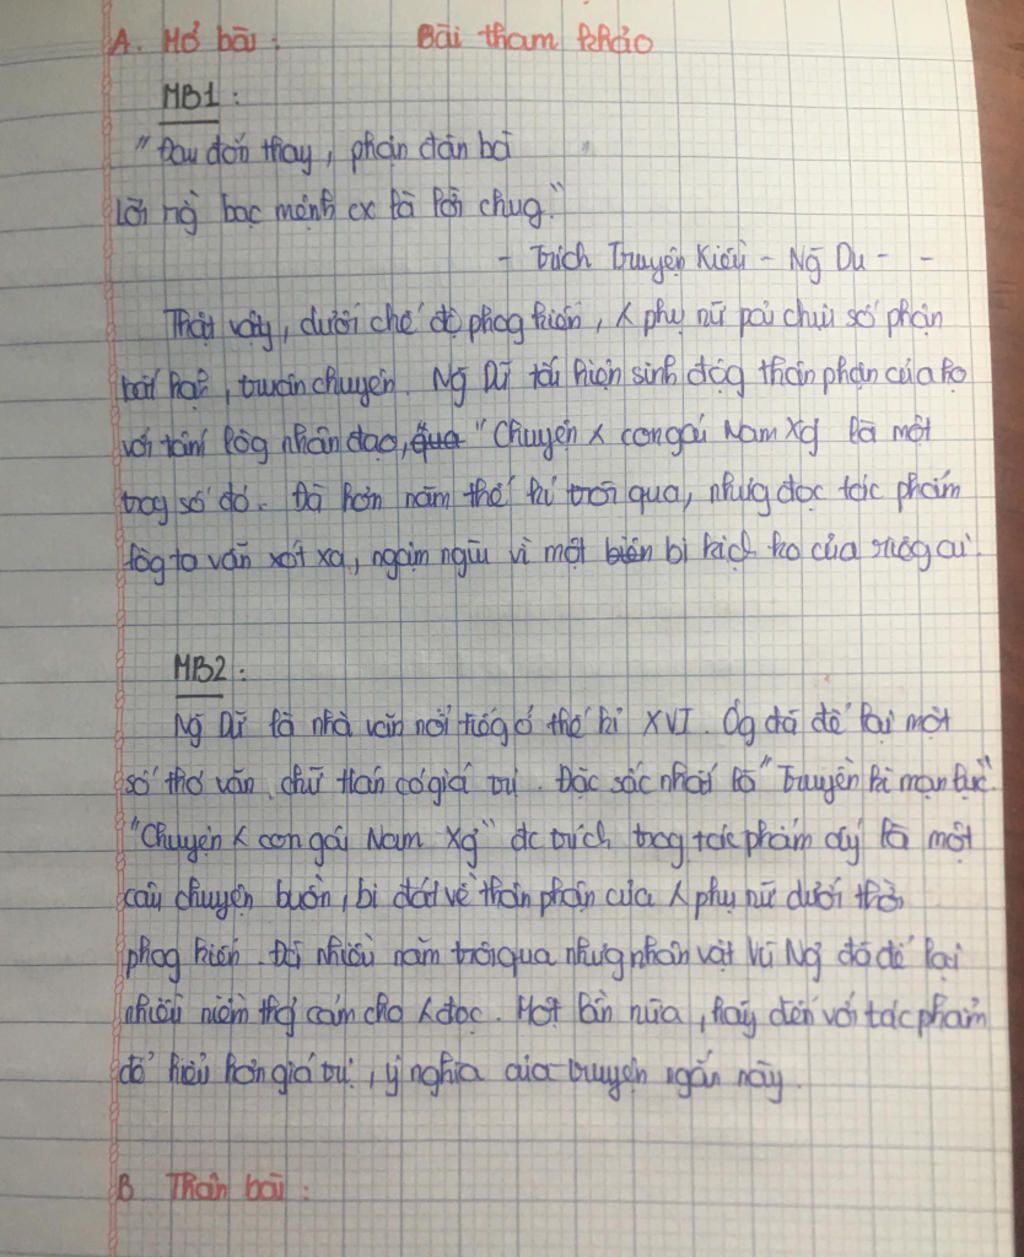 A. Mở bài : Bài tham khảo
MB1 :
"Đau đớn thay, phận đàn bà
Lời rằg bạc mệnh cx là lời chug."
- Trích Truyện Kiều - Ng Du - -
Thật vậy, dưới chế độ phog kiến, ʎ phụ nữ pải chịu số phận
bất hạh, truân chuyên. Ng Dữ tái hiện sinh độg thân phận của họ
với tấm lòg nhân đạo, qua "Chuyện ʎ con gái Nam Xg là một
trog số đó. Đã hơn năm thế kỉ trôi qua, nhưg đọc tác phẩm
lòg ta vẫn xót xa, ngậm ngùi vì một biên bi kịch ko của riêg ai.
MB2 :
Ng Dữ là nhà văn nổi tiếg ở thế kỉ XVI. Ôg đã để lại một
số thơ văn chữ Hán có giá trị. Đặc sắc nhất là "Truyền kì mạn lục".
"Chuyện ʎ con gái Nam Xg" đc trích trog tác phẩm ấy là một
câu chuyện buồn, bi đát về thân phận của ʎ phụ nữ dưới thời
phog kiến. Đã nhiều năm trôi qua nhưg nhân vật Vũ Ng đã để lại
nhiều niềm thg cảm cho ʎ đọc. Một lần nữa, hãy đến với tác phẩm
để hiểu hơn giá trị, ý nghĩa của truyện ngắn này.
B Thân bài :